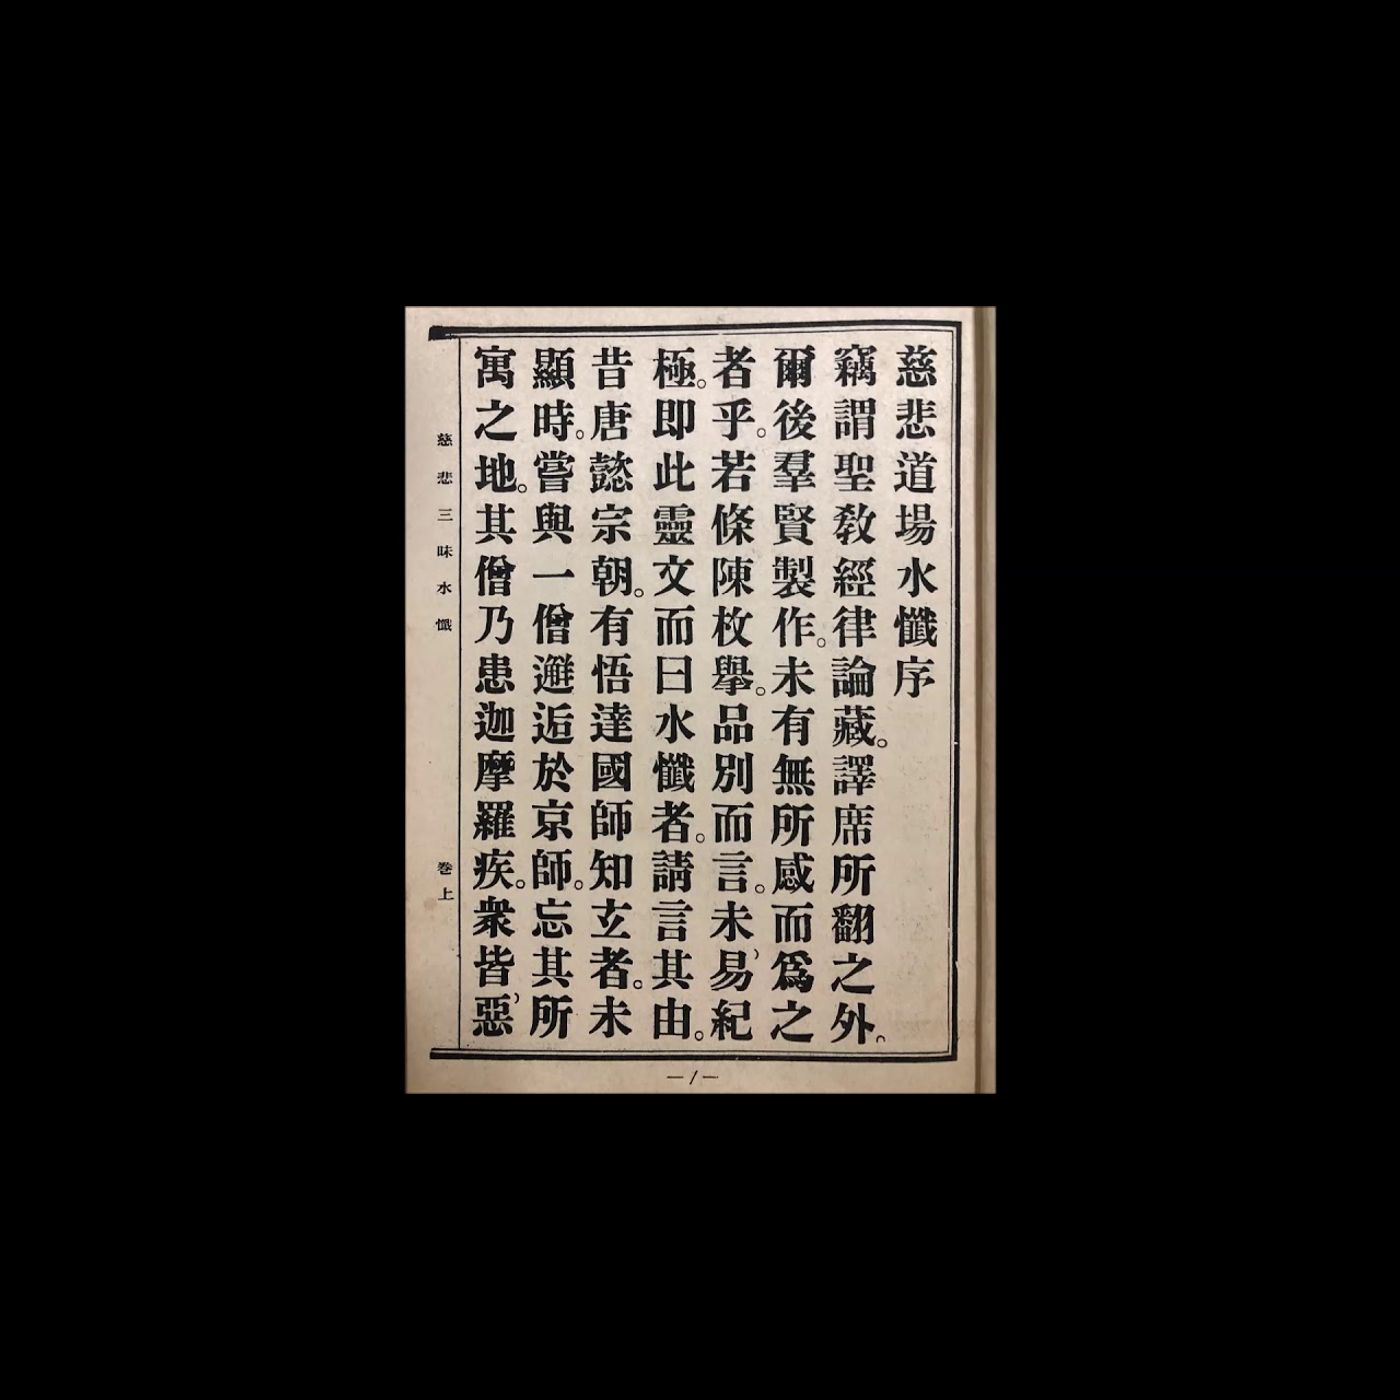 慈悲道場水懺序
竊謂聖教經律論藏。譯席所翻之外。
爾後羣賢製作。未有無所感而爲之
者乎。若條陳枚擧。品別而言。未易紀
極。即此靈文而曰水懺者。請言其由。
昔唐懿宗朝。有悟達國師知玄者。未
顯時。嘗與一僧邂逅於京師。忘其所
寓之地。其僧乃患迦摩羅疾。衆皆惡
慈悲三昧水懺 卷上
—1—